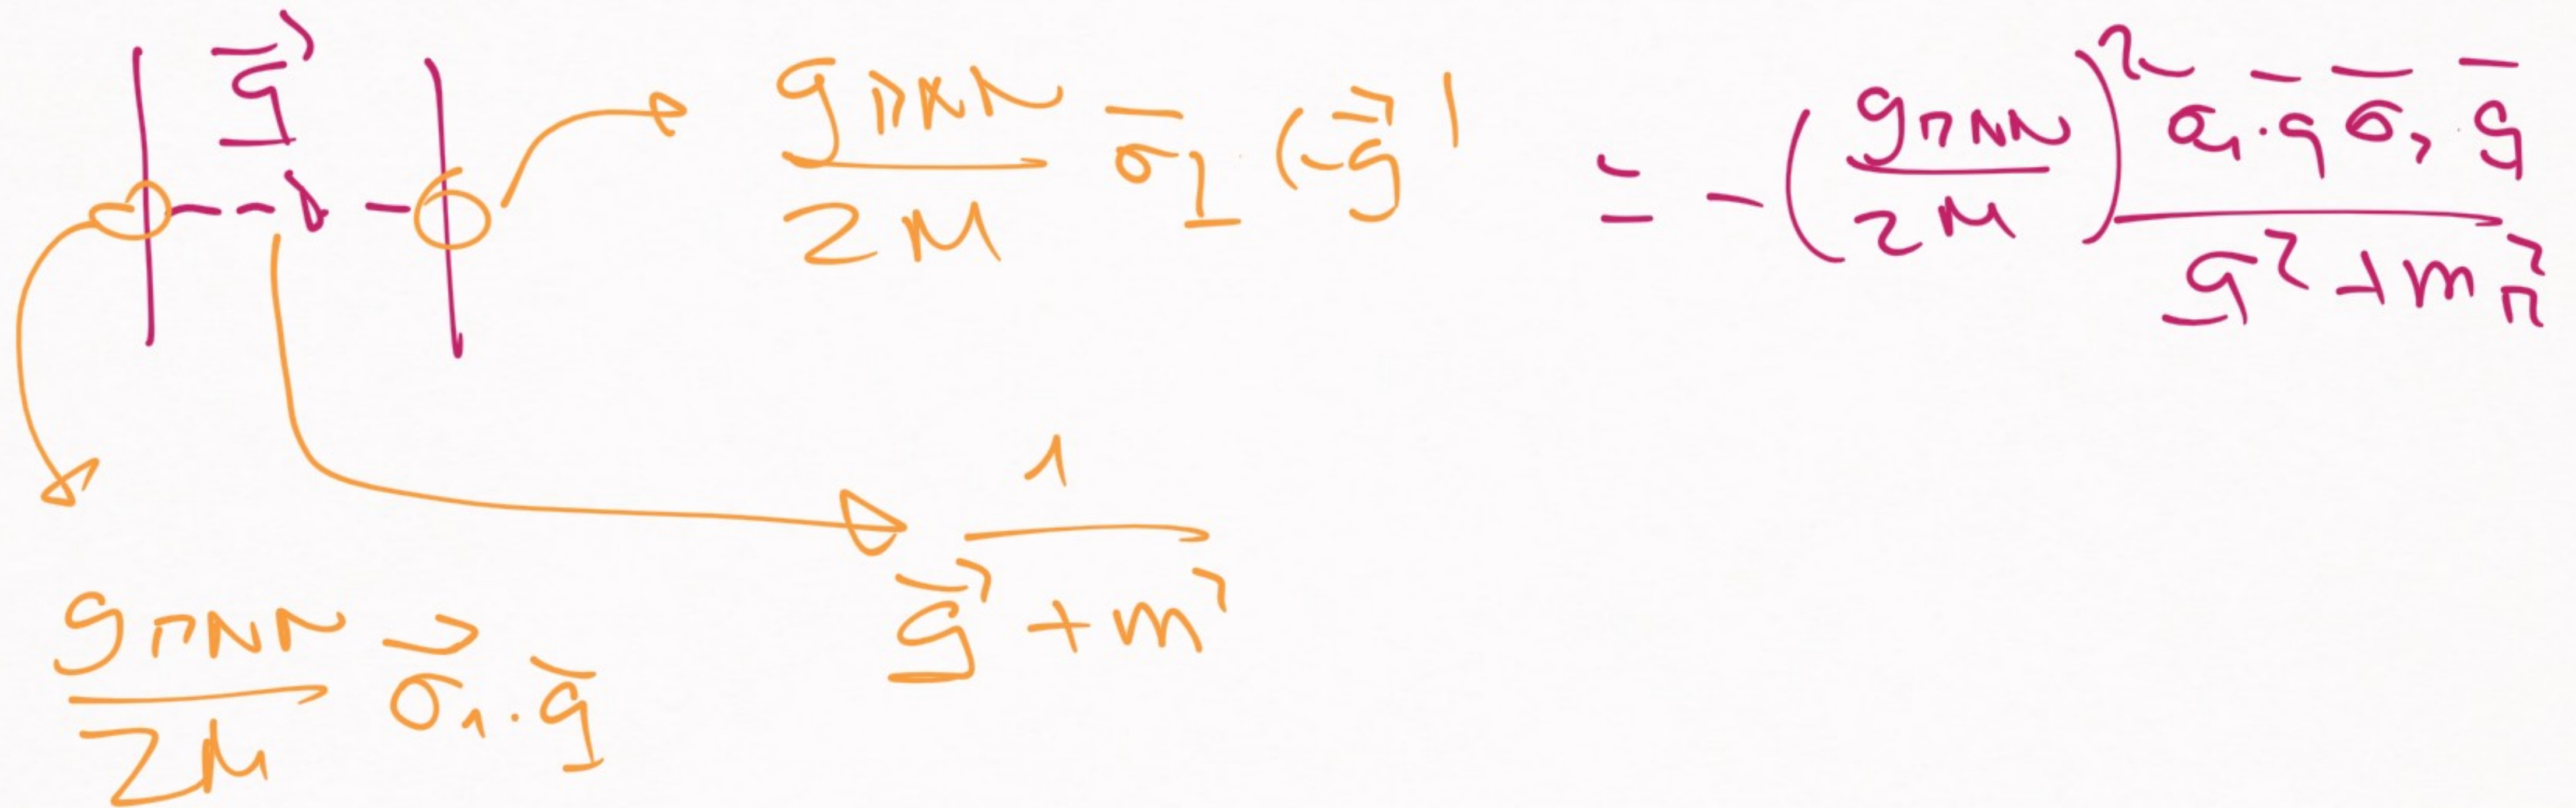 $\vec{q}$
$\frac{g_{\pi NN}}{2M} \vec{\sigma}_2 \cdot (-\vec{q})$
$= -\left(\frac{g_{\pi NN}}{2M}\right)^2 \frac{\vec{\sigma}_1 \cdot \vec{q} \, \vec{\sigma}_2 \cdot \vec{q}}{q^2 + m_\pi^2}$
$\frac{1}{\vec{q}^2 + m^2}$
$\frac{g_{\pi NN}}{2M} \vec{\sigma}_1 \cdot \vec{q}$